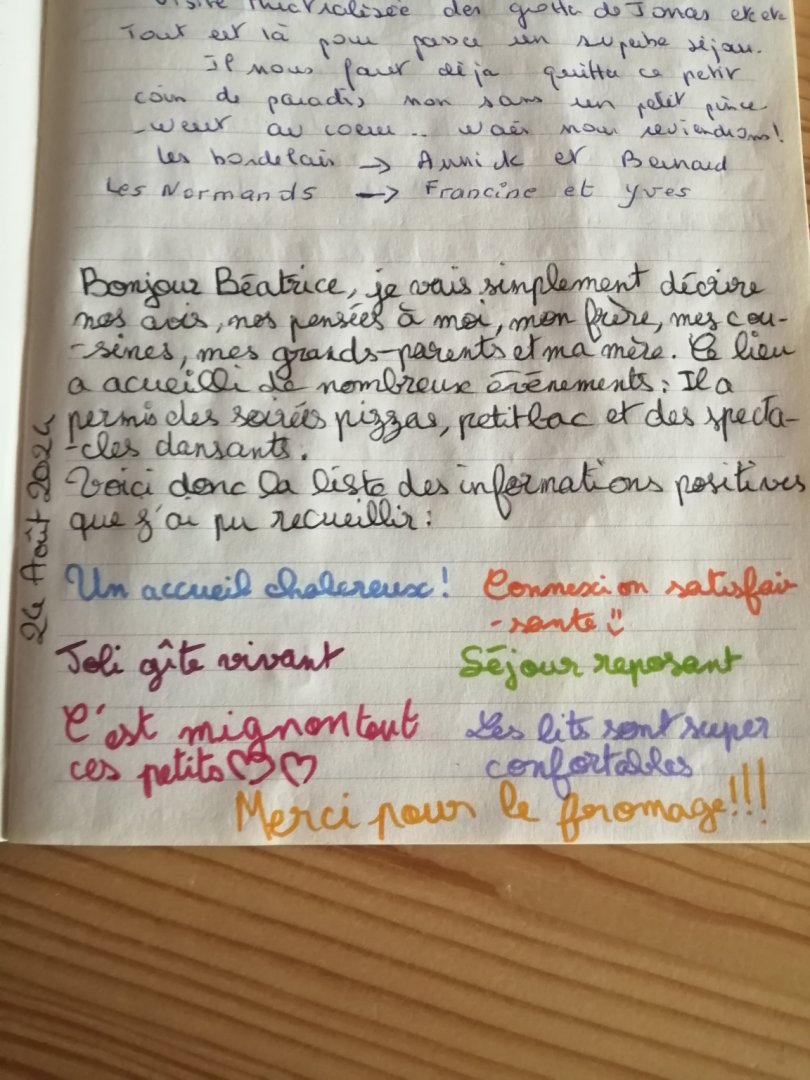 visite théâtralisée des grotte de Jonas etc etc
Tout est là pour passer un superbe séjour.
Il nous faut déja quitter ce petit
coin de paradis non sans un petit pince
-ment au coeur.. nous reviendrons!
Les bordelais → Annick et Bernard
Les Normands → Francine et Yves
Bonjour Béatrice, je vais simplement décrire
nos avis, nos pensées à moi, mon frère, mes cou-
-sines, mes grands-parents et ma mère. Ce lieu
a acueilli de nombreux évènements : Il a
permis des soirées pizzas, petit bac et des specta-
-cles dansants.
Voici donc la liste des informations positives
que j'ai pu recueillir :
24 Août 2024
Un accueil chalereux !
Connexion satisfai-
-sante
Joli gîte vivant
Séjour reposant
C'est mignon tout
ces petits
Les lits sont super
confortables
Merci pour le fromage!!!